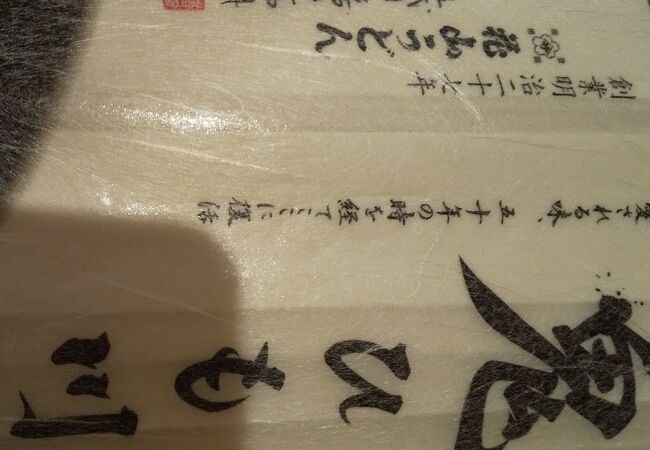 鬼ひも川
愛される味、五十年の時を経てここに復活
創業明治二十七年
花山うどん